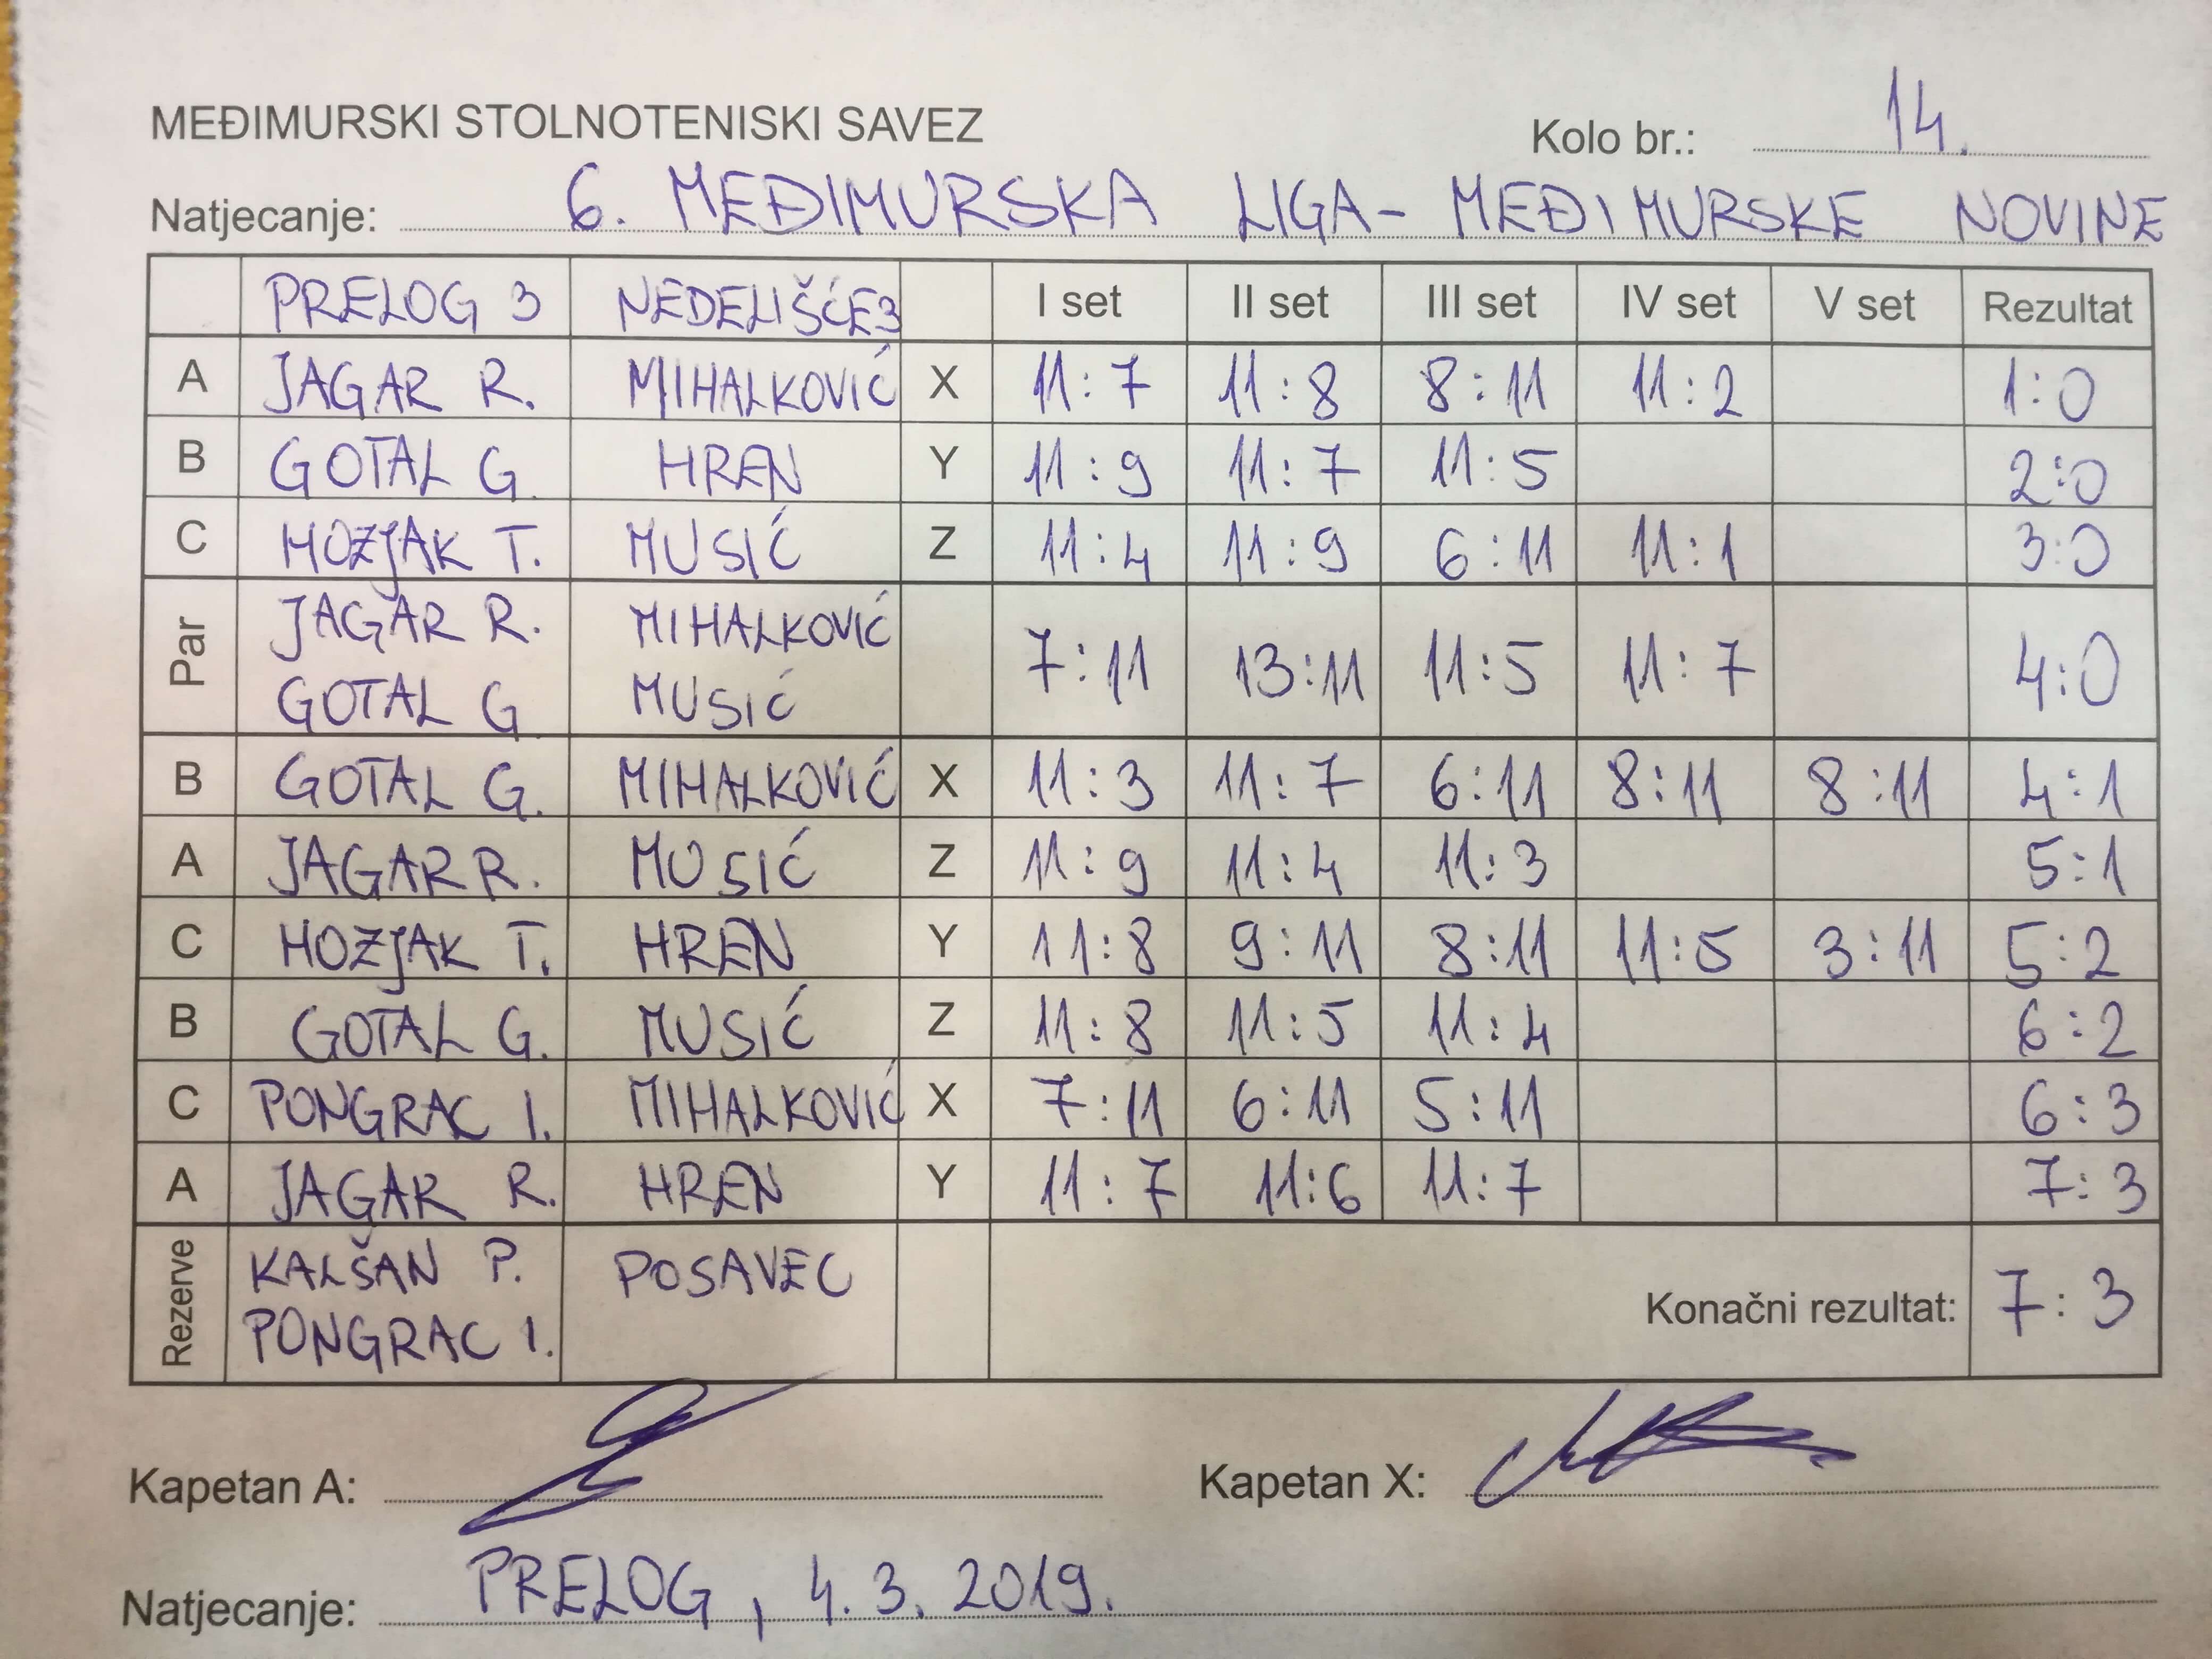 MEĐIMURSKI STOLNOTENISKI SAVEZ
Kolo br.: 14.
Natjecanje: 6. MEĐIMURSKA LIGA - MEĐIMURSKE NOVINE
PRELOG 3 NEDELIŠĆE 3 I set II set III set IV set V set Rezultat
A JAGAR R. MIHALKOVIĆ X 11:7 11:8 8:11 11:2 1:0
B GOTAL G. HREN Y 11:9 11:7 11:5 2:0
C HOZJAK T. MUSIĆ Z 11:4 11:9 6:11 11:1 3:0
Par JAGAR R. MIHALKOVIĆ 7:11 13:11 11:5 11:7 4:0
GOTAL G MUSIĆ
B GOTAL G. MIHALKOVIĆ X 11:3 11:7 6:11 8:11 8:11 4:1
A JAGAR R. MUSIĆ Z 11:9 11:4 11:3 5:1
C HOZJAK T. HREN Y 11:8 9:11 8:11 11:5 3:11 5:2
B GOTAL G. MUSIĆ Z 11:8 11:5 11:4 6:2
C PONGRAC I. MIHALKOVIĆ X 7:11 6:11 5:11 6:3
A JAGAR R. HREN Y 11:7 11:6 11:7 7:3
Rezerve KALŠAN P. POSAVEC
PONGRAC I.
Konačni rezultat: 7:3
Kapetan A: Kapetan X:
Natjecanje: PRELOG, 4.3.2019.